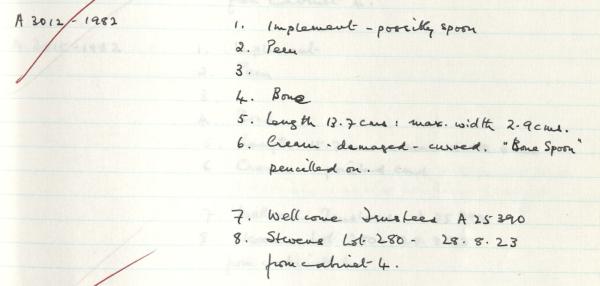 A 3012 - 1982
1. Implement - possibly spoon
2. Peru
3.
4. Bone
5. Length 13.7 cms : max. width 2.9 cms.
6. Cream - damaged - curved. "Bone Spoon"
pencilled on.
7. Wellcome Trustees A 25390
8. Stevens Lot 280 - 28.8.23
from cabinet 4.